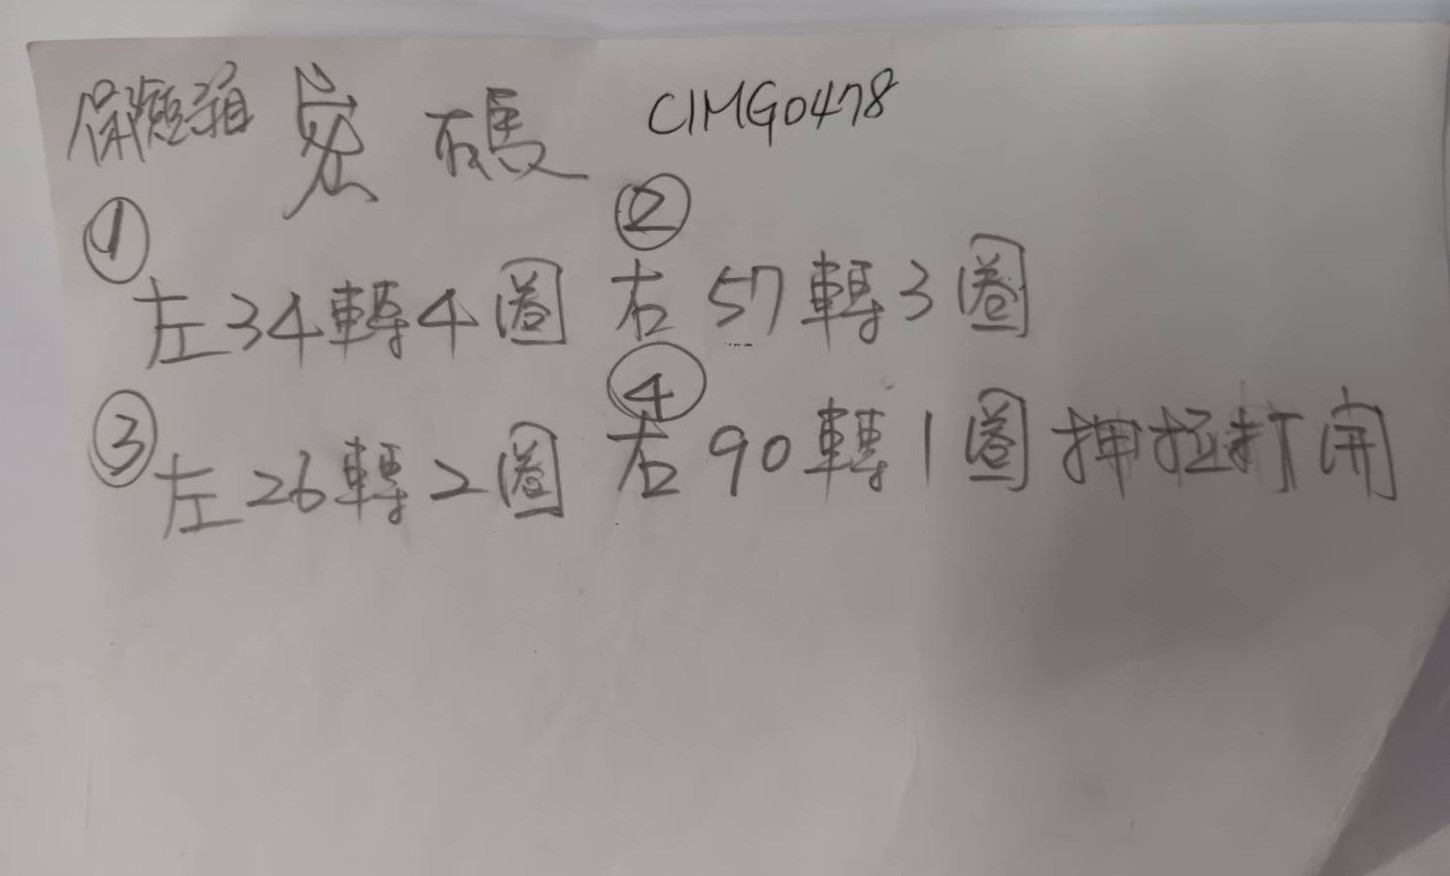 保險箱 密碼 CIMG0478
① ②
左34轉4圈 右57轉3圈
③ ④
左26轉2圈 右90轉1圈 押拉打開